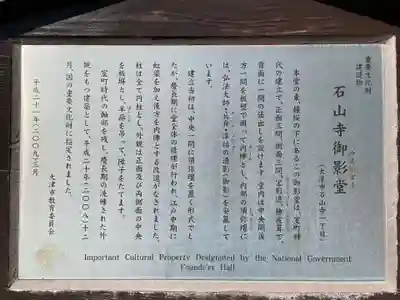 重要文化財
建造物
石山寺御影堂
（大津市石山寺一丁目）
本堂の東、鐘楼の下にあるこの御影堂は、室町時
代の建立で、正面三間、側面三間、宝形造、檜皮葺で、
背面に一間の張出しを設けます。室内は中央間後
方一間を板壁で囲って内陣とし、内部の須弥壇に
は、弘法大師・良弁・淳祐の遺影（御影）を安置して
います。
建立当初は、中央一間に須弥壇を置く形式でし
たが、慶長期に堂全体の修理が行われ、江戸中期に
虹梁を加え後方を内陣とする改造がなされました。
柱は全て円柱とし、外観は正面及び両側面の中央
を板扉とし、半蔀を吊って、障子をたてます。
室町時代の軸部を残し、慶長期の洗練された外
観をもつ建築として、平成二十年（二〇〇八）十二
月、国の重要文化財に指定されました。
平成二十一年（二〇〇九）三月
大津市教育委員会
Important Cultural Property Designated by the National Government
Founder's Hall